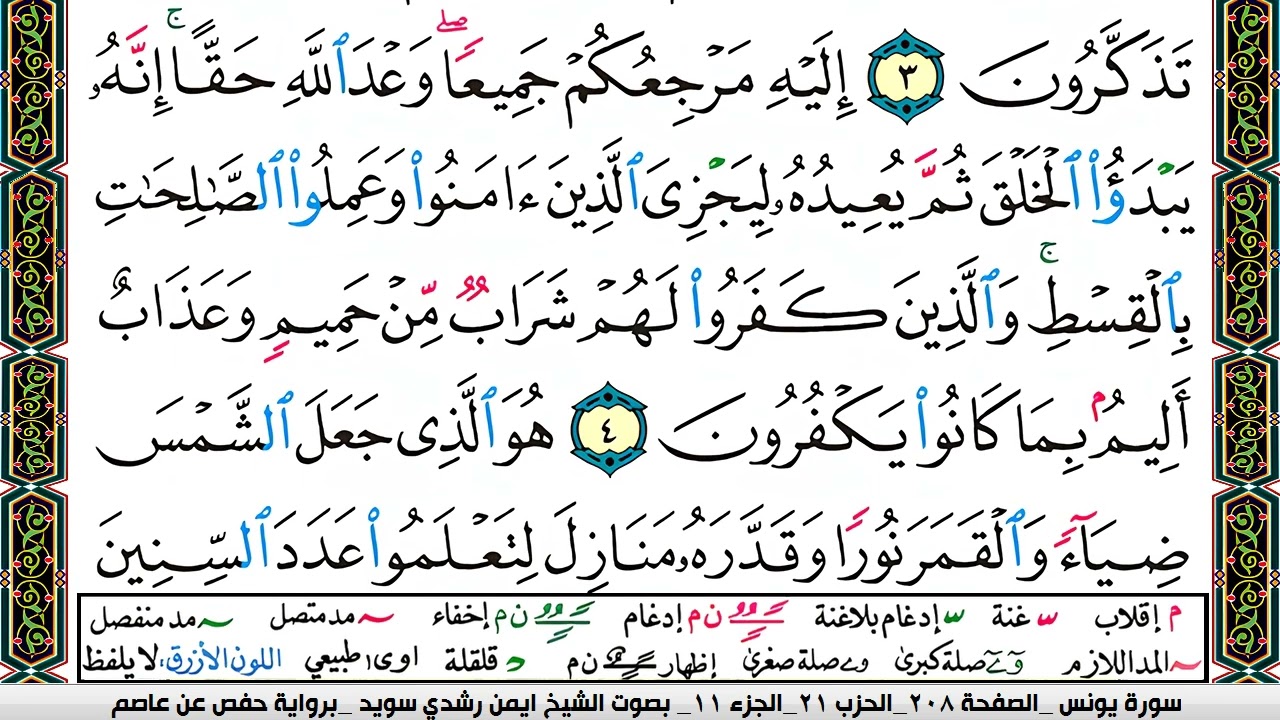 تَذَكَّرُونَ ٣ إِلَيْهِ مَرْجِعُكُمْ جَمِيعًاۖ وَعْدَ ٱللَّهِ حَقًّاۚ إِنَّهُۥ
يَبْدَؤُا۟ ٱلْخَلْقَ ثُمَّ يُعِيدُهُۥ لِيَجْزِىَ ٱلَّذِينَ ءَامَنُوا۟ وَعَمِلُوا۟ ٱلصَّٰلِحَٰتِ
بِٱلْقِسْطِۚ وَٱلَّذِينَ كَفَرُوا۟ لَهُمْ شَرَابٌ مِّنْ حَمِيمٍ وَعَذَابٌ
أَلِيمٌۢ بِمَا كَانُوا۟ يَكْفُرُونَ ٤ هُوَ ٱلَّذِى جَعَلَ ٱلشَّمْسَ
ضِيَآءً وَٱلْقَمَرَ نُورًا وَقَدَّرَهُۥ مَنَازِلَ لِتَعْلَمُوا۟ عَدَدَ ٱلسِّنِينَ
م إقلاب غنة إدغام بلاغنة ن م إدغام ن م إخفاء مد متصل مد منفصل
المد اللازم و ے صلة كبرى و ے صلة صغرى إظهار ن م قلقلة اوى طبيعي اللون الأزرق، لا يلفظ
سورة يونس _الصفحة ٢٠٨_الحزب ٢١_الجزء ١١_ بصوت الشيخ ايمن رشدي سويد _برواية حفص عن عاصم